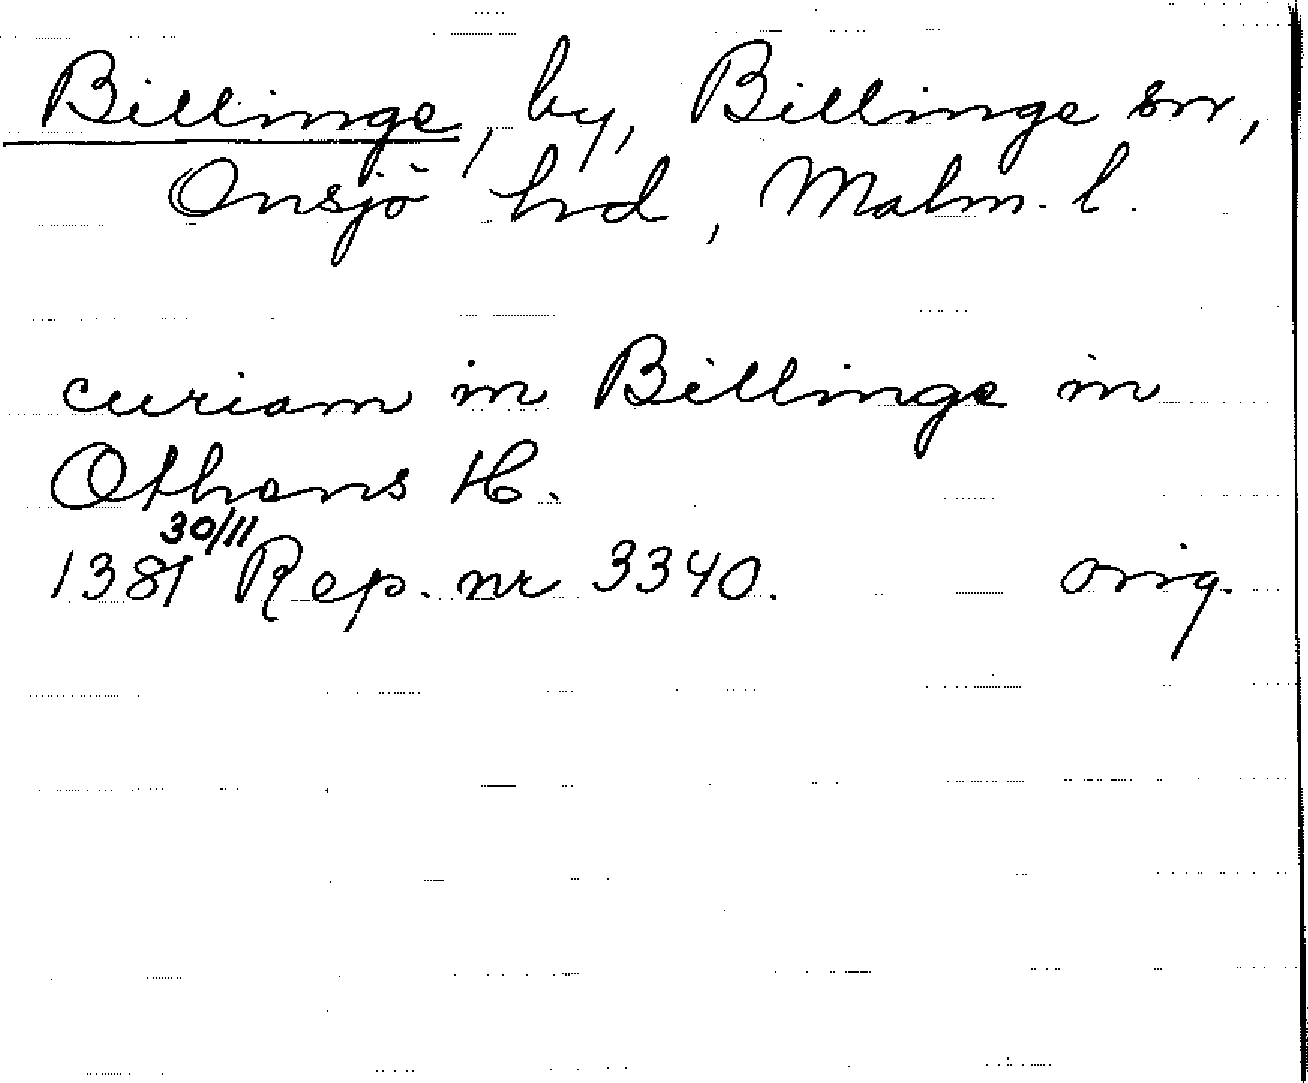 Billinge, by, Billinge sn,
Onsjö hd, Malm. l.
curiam in Billinge in
Othans H.
30/11
1381 Rep. nr 3340. orig.